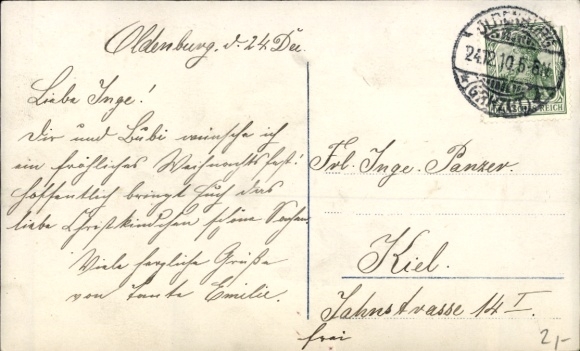 Oldenburg, d. 24. Dez.
Liebe Inge!
Dir und Bubi wünsche ich
ein fröhliches Weihnachtsfest!
Hoffentlich bringt Euch das
liebe Christkindchen schöne Sachen.
Viele herzliche Grüße
von Tante Emilie.
OLDENBURG
24.12.10.6-
GR
REICH
Frl. Inge Panzer.
Kiel.
Jahnstrasse 14 I.
frei
2,-